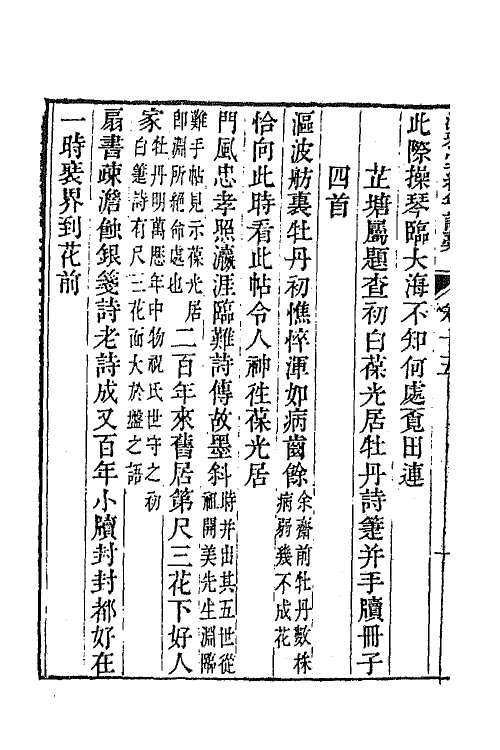 此際操琴臨大海不知何處覓田連
芷塘屬題查初白葆光居牡丹詩箑并手牘冊子
四首
漚波舫裏牡丹初憔悴渾如病齒餘余齋前牡丹數株
病弱幾不成花
恰向此時看此帖令人神往葆光居
門風忠孝照瀛涯臨難詩傳故墨斜時并出其五世從
祖開美先生淵臨
難手帖見示葆光居
即淵所絕命處也二百年來舊居第尺三花下好人
家牡丹明萬厯年中物祝氏世守之初
白箑詩有尺三花面大於盤之語
扇書疎澹蝕銀箋詩老詩成又百年小牘封封都好在
一時裝界到花前
十五